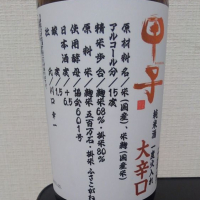 甲子
純米酒
一度火入れ
大辛口
原材料名／米（国産）、米麹（国産米）
アルコール分／15度
精米歩合／麹米68％・掛米80％
原料米／麹米 五百万石・掛米 ふさこがね
使用酵母／協会601号
日本酒度／＋6.5